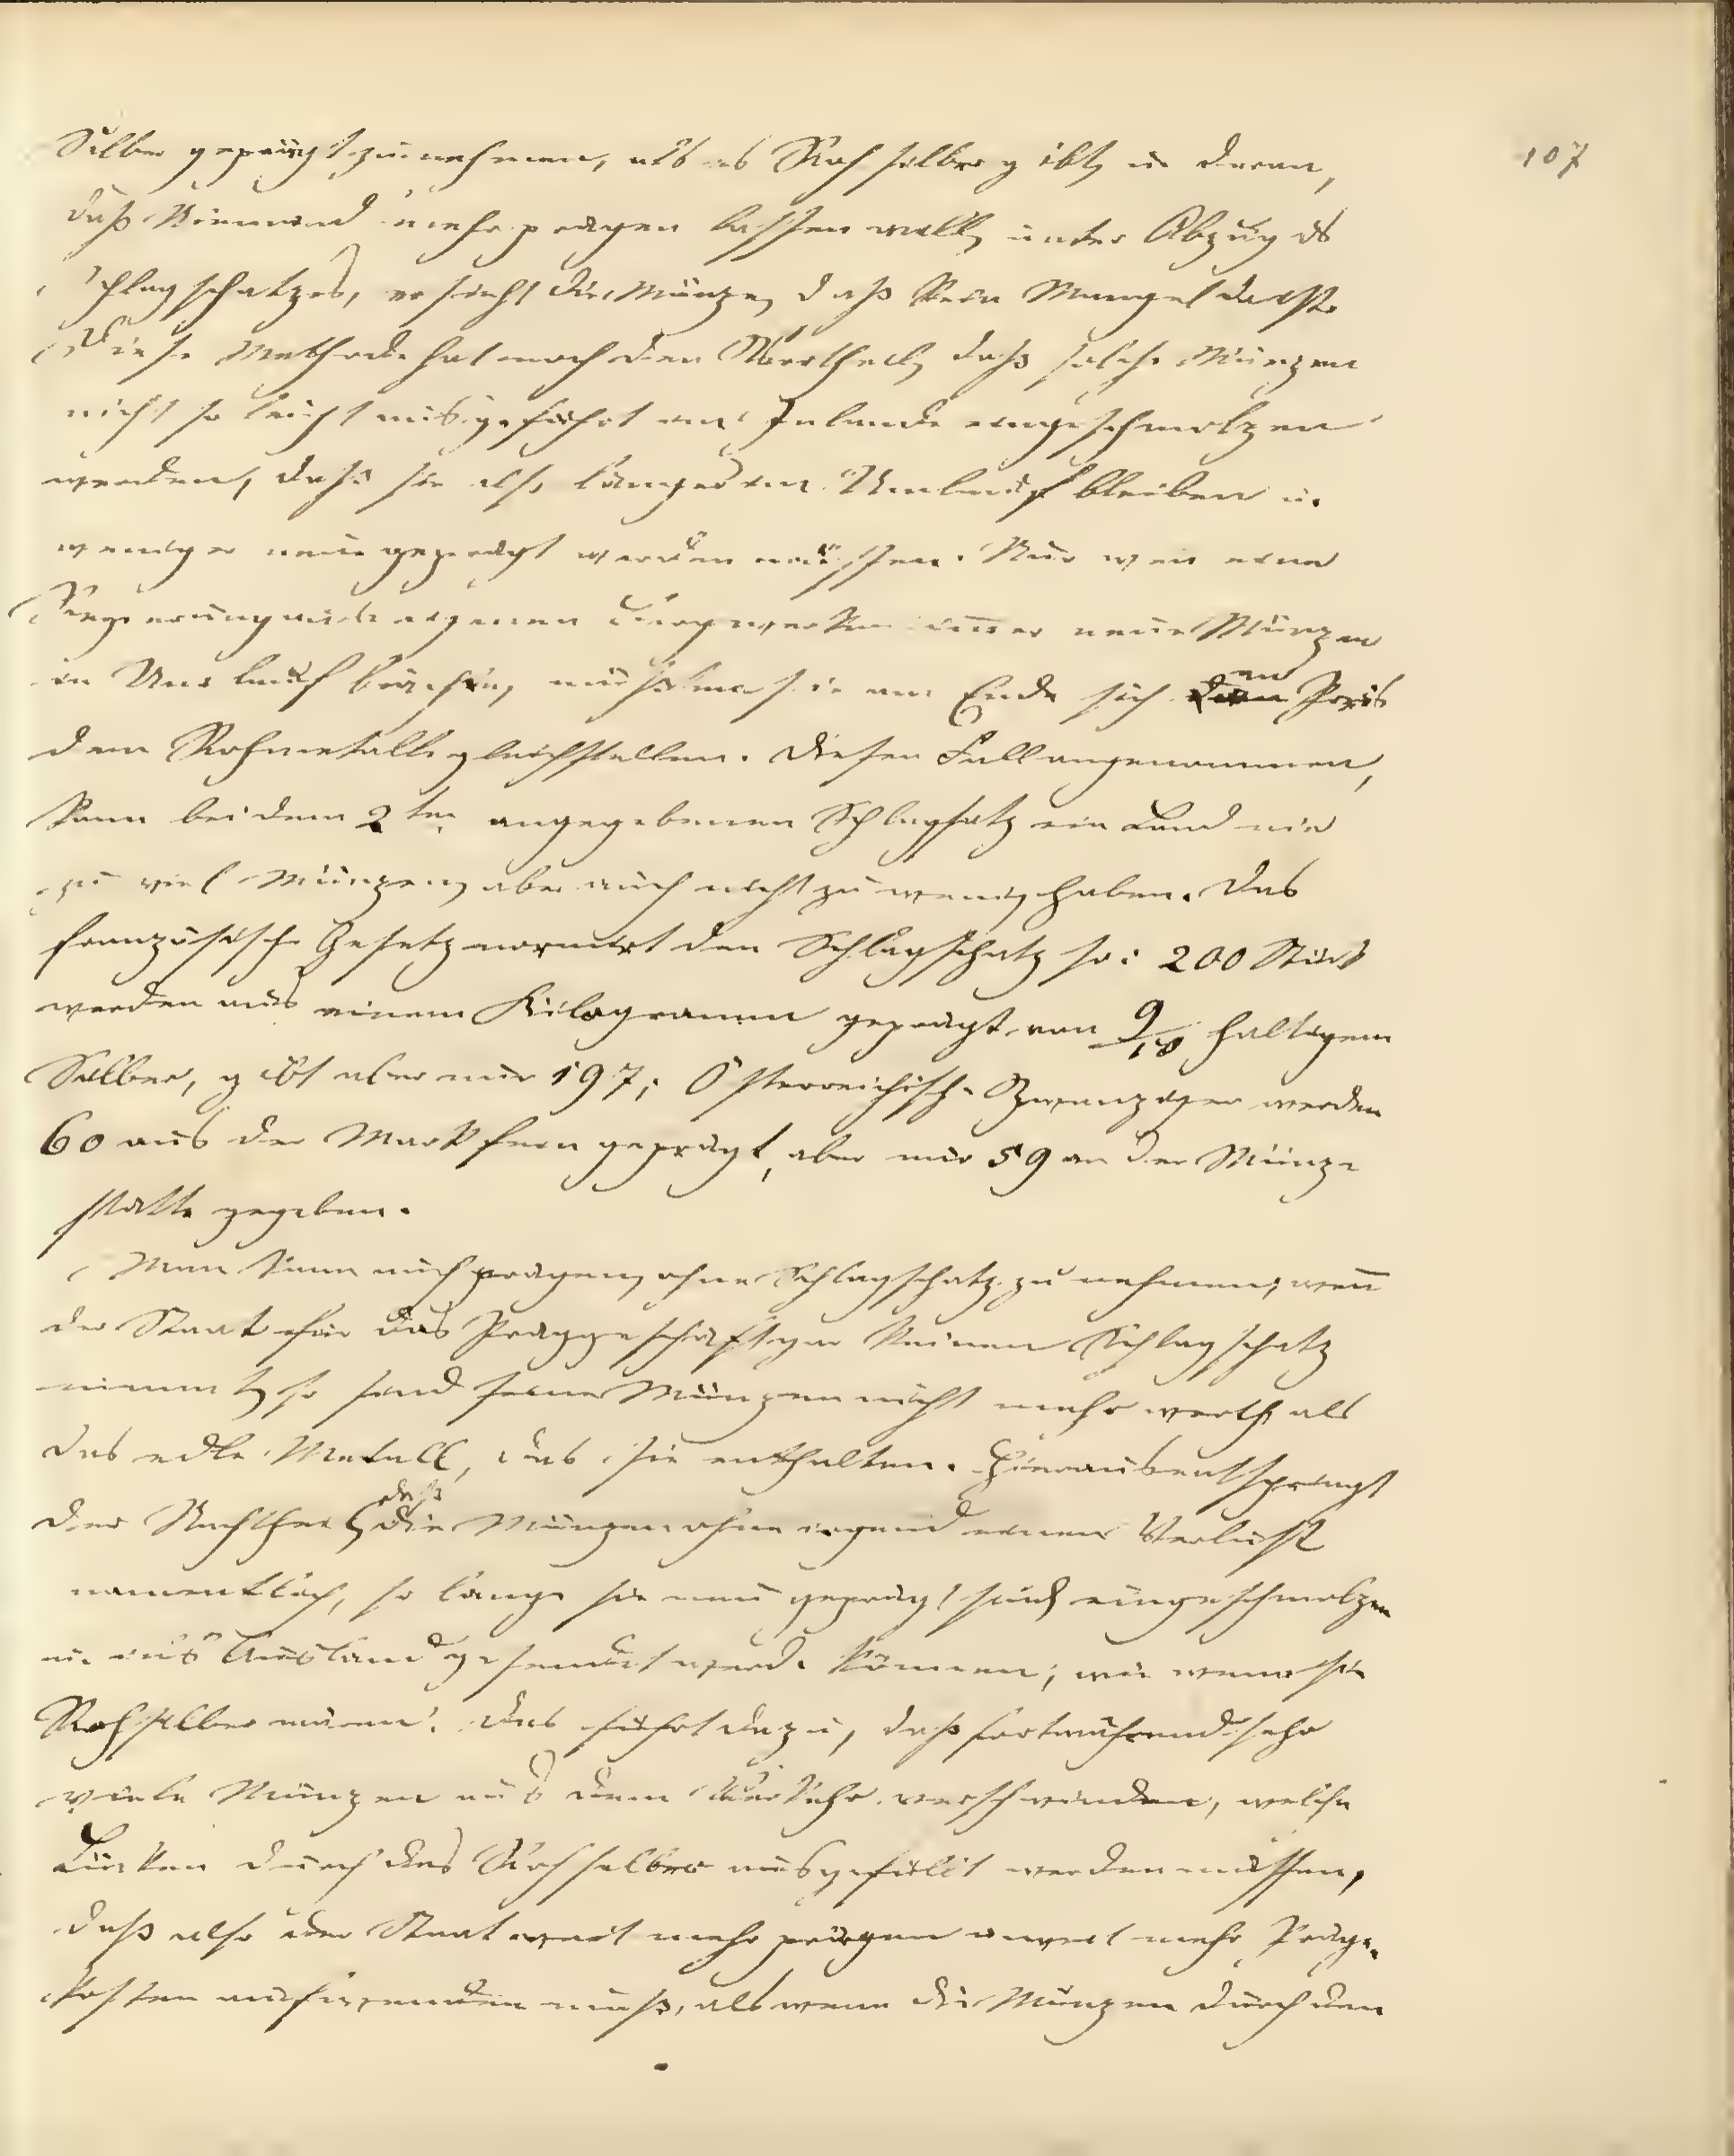 107
Silber geprägt zu nehmen, als es Rohsilber gibt, u. daran,
daß Niemand mehr prägen lassen will, unter Abzug des
Schlagschatzes, ersieht die Münze, daß kein Mangel da ist.
Diese Methode hat noch den Vortheil, daß solche Münzen
nicht so leicht ausgeführt im Inlande eingeschmolzen
werden, daß sie also länger im Umlauf bleiben u.
weniger neu geprägt werden müssen. Nur wen eine
Regierung mit eigenen Bergwerken immer neue Münzen
in Umlauf brächte, müssten sie am Ende sich im Preis
dem Rohmetalle gleichstellen. Diesen Fall angenommen,
kann bei dem 2ten angegebenen Schlagsatz ein Land nie
zu viel Münzen, aber auch nicht zu wenig haben. Das
französische Gesetz normirt den Schlagschatz so: 200 Stück
werden aus einem Kilogramm geprägt von 9/10 haltigem
Silber, gibt aber nur 197; Österreichische Zwanziger werden
60 aus der Mark fein geprägt, aber nur 59 an der Münz-
stätte gegeben.
Man kann auch prägen, ohne Schlagschatz zu nehmen; weñ
der Staat für das Prägegeschäft gar keinen Schlagschatz
nimmt, so sind seine Münzen nicht mehr werth als
das edle Metall, das sie enthalten. Hieraus entspringt
der Nachtheil, daß die Münzen ohne irgend einen Verlust
namentlich, so lange sie neu geprägt sind, eingeschmolzen
u. ins Ausland gesendet werde können, wie wenn sie
Rohsilber wären. Das führt dazu, daß fortwährend sehr
viele Münzen aus dem Verkehr verschwinden, welche
Lücken durch das Rohsilber ausgefüllt werden müssen,
daß also der Staat weit mehr prägen u weit mehr Präge-
kosten aufwenden muß, als wenn die Münzen durch den